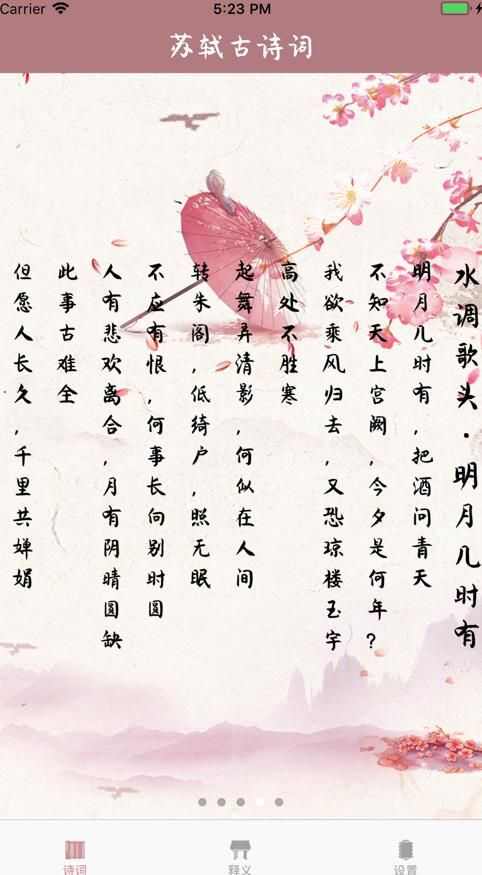 Carrier
5:23 PM
苏轼古诗词
水调歌头·明月几时有
明月几时有,把酒问青天
不知天上宫阙,今夕是何年?
我欲乘风归去,又恐琼楼玉宇
高处不胜寒
起舞弄清影,何似在人间
转朱阁,低绮户,照无眠
不应有恨,何事长向别时圆
人有悲欢离合,月有阴晴圆缺
此事古难全
但愿人长久,千里共婵娟
诗词
释义
设置